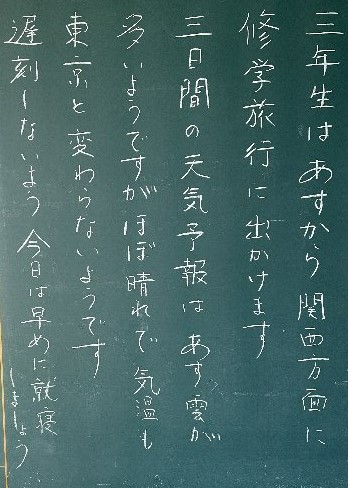 三年生はあすから関西方面に
修学旅行に出かけます
三日間の天気予報はあす雲が
多いようですがほぼ晴れで気温も
東京と変わらないようです
遅刻しないよう今日は早めに就寝しましょう